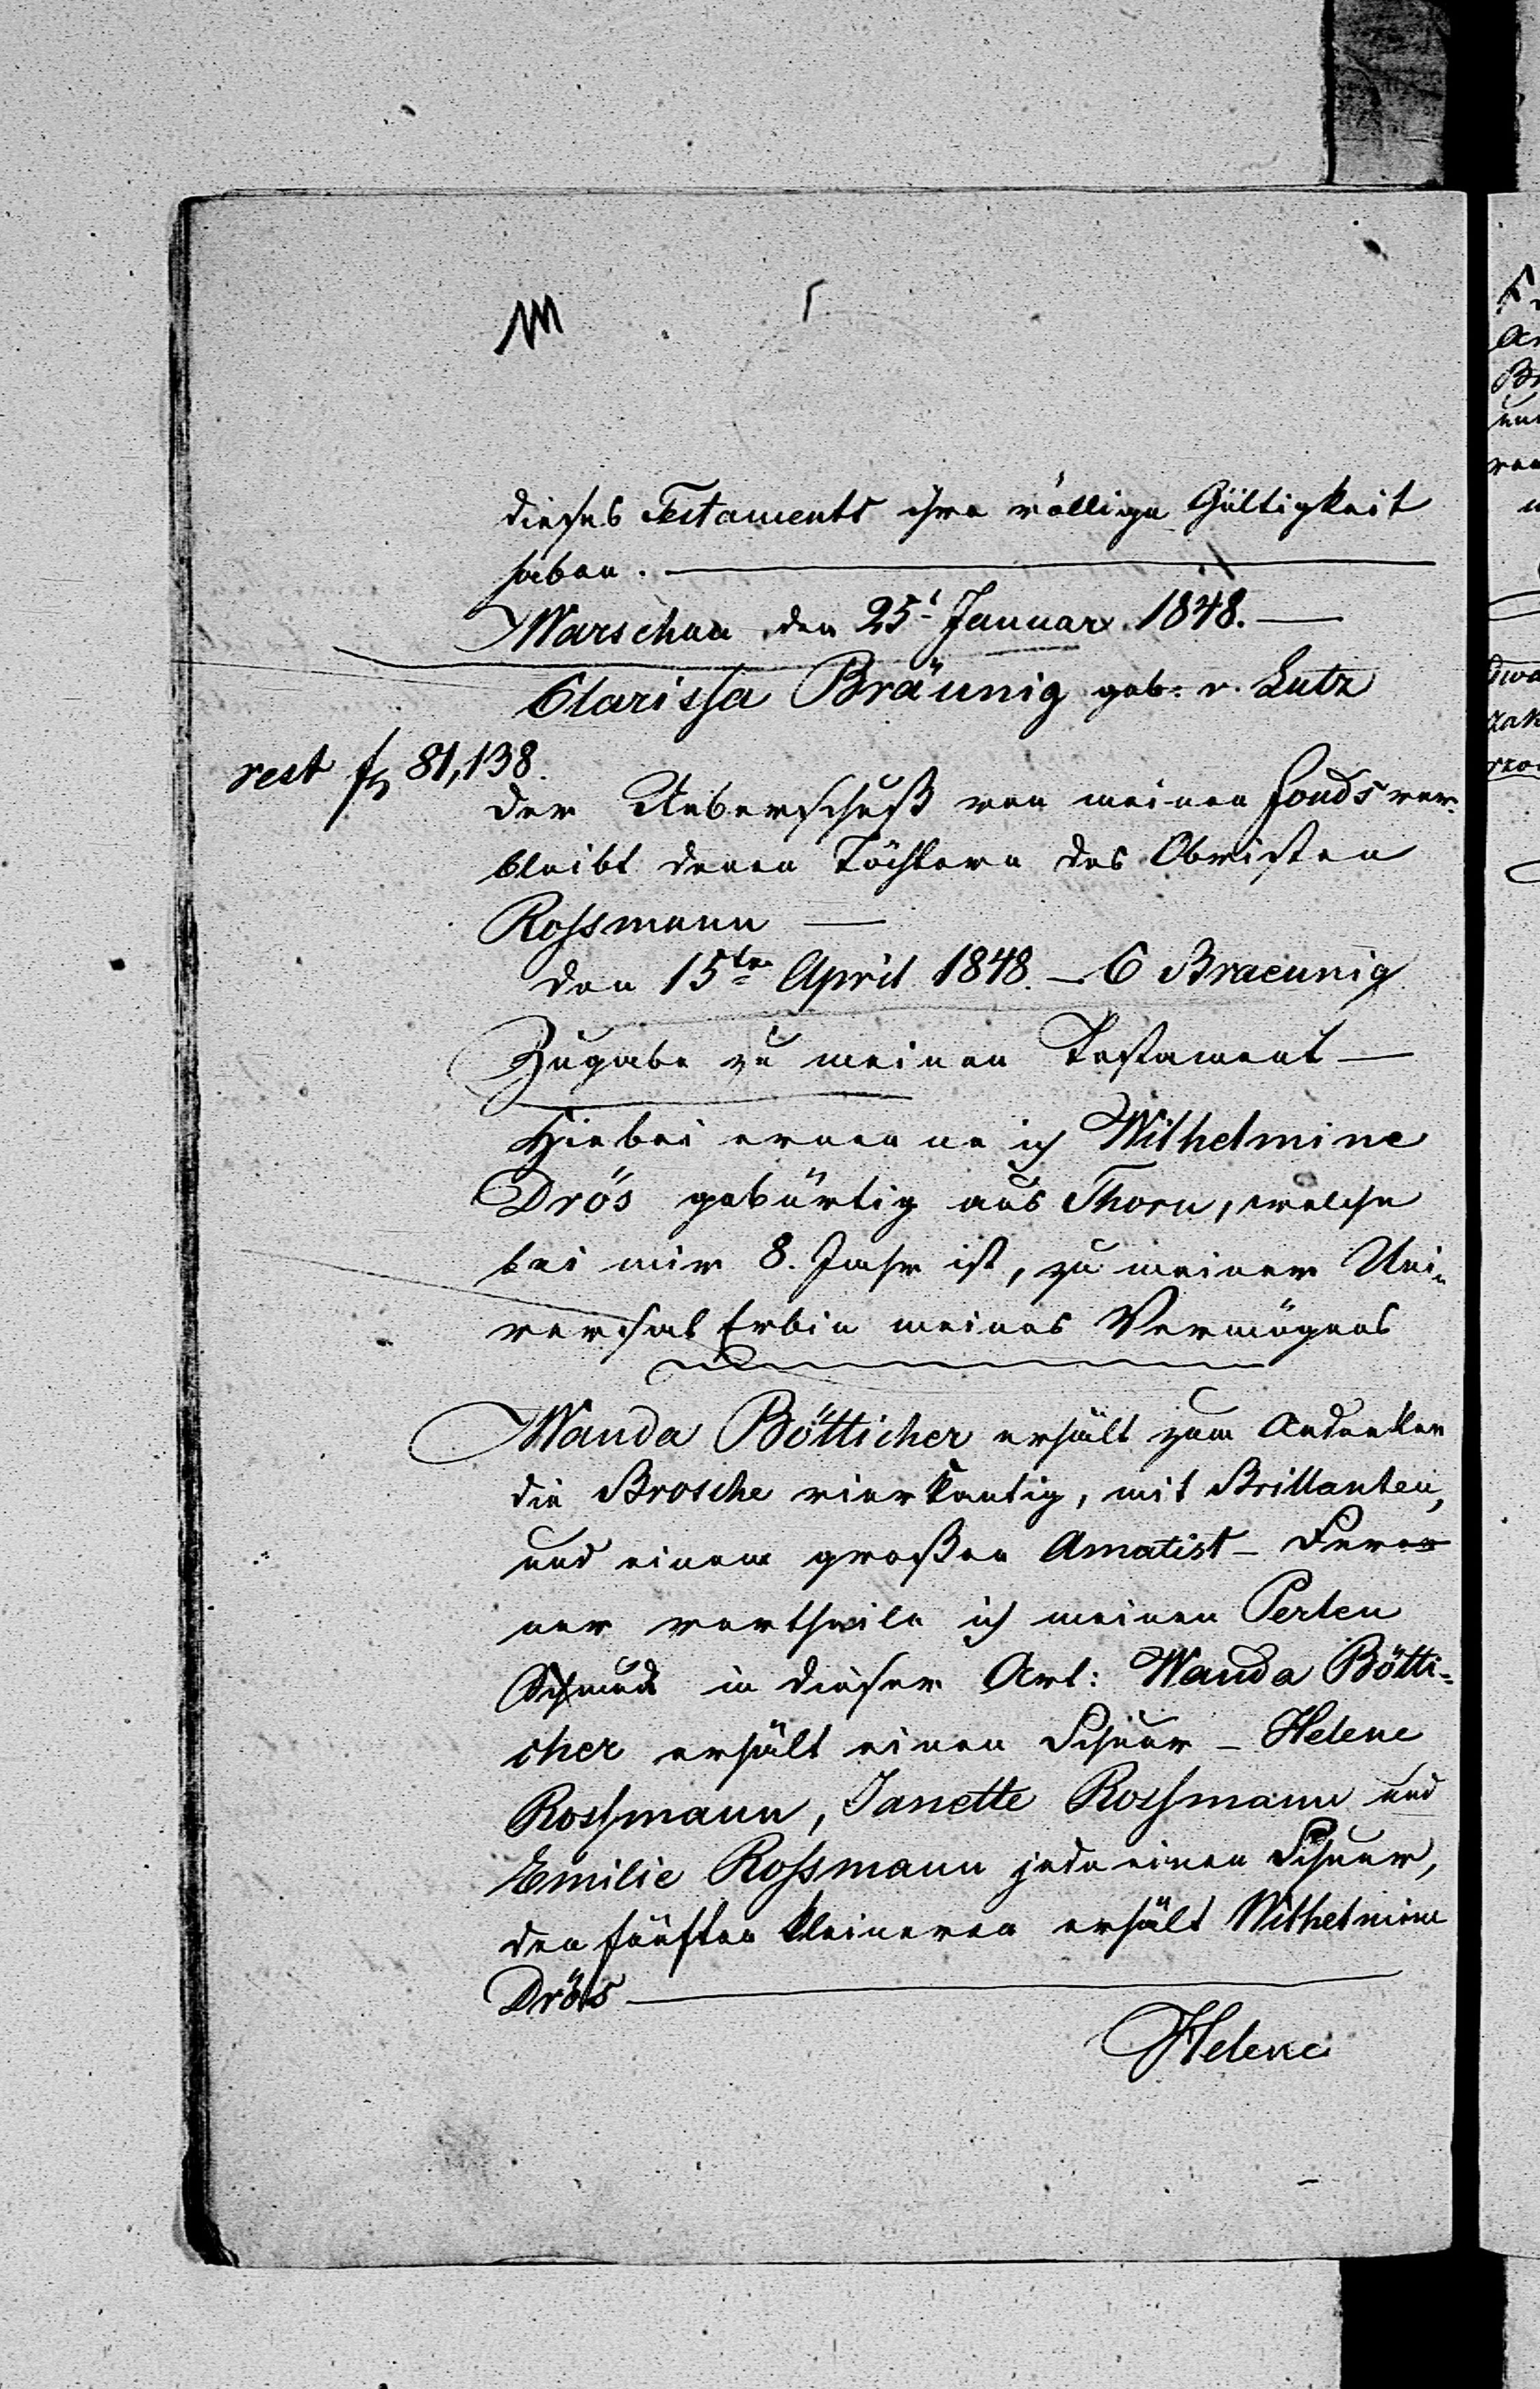 dieses Testaments ihre völlige Gültigkeit
haben. —
Warschau den 25t Januar 1848. —
Clarissa Bräunig geb: v. Lutz
rest f 81,138.
Der Ueberschuß von meinen Fonds ver-
bleibt denen Töchtern des Obristen
Rossmann —
den 15ten April 1848. — C Braeunig
Zugabe zu meinen Testament —
Hiebei ernenne ich Wilhelmine
Drös gebürtig aus Thorn, welche
bei mir 8. Jahr ist, zu meiner Uni-
versal Erbin meines Vermögens
Wanda Bötticher erhält zum Andenken
die Brosche vierkantig, mit Brillanten,
und einem großen Amatist — Fer
ner vertheile ich meinen Perlen
Schmuck in dieser Art: Wanda Bötti-
cher erhält einen Schnur — Helene
Rossmann, Janette Rossmann und
Emilie Rossmann jede einen Schnur,
den fünften kleineren erhält Wilhelmine
Drös —
Helene